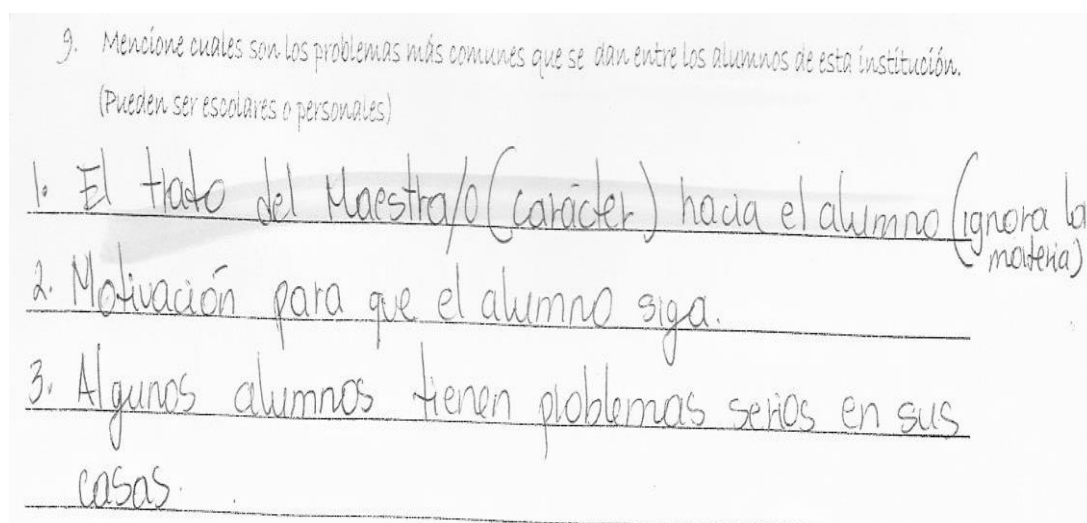 9. Mencione cuales son los problemas más comunes que se dan entre los alumnos de esta institución.
(Pueden ser escolares o personales)
1. El trato del Maestra/o (carácter) hacia el alumno (ignora la
materia)
2. Motivación para que el alumno siga.
3. Algunos alumnos tienen problemas serios en sus
casas.